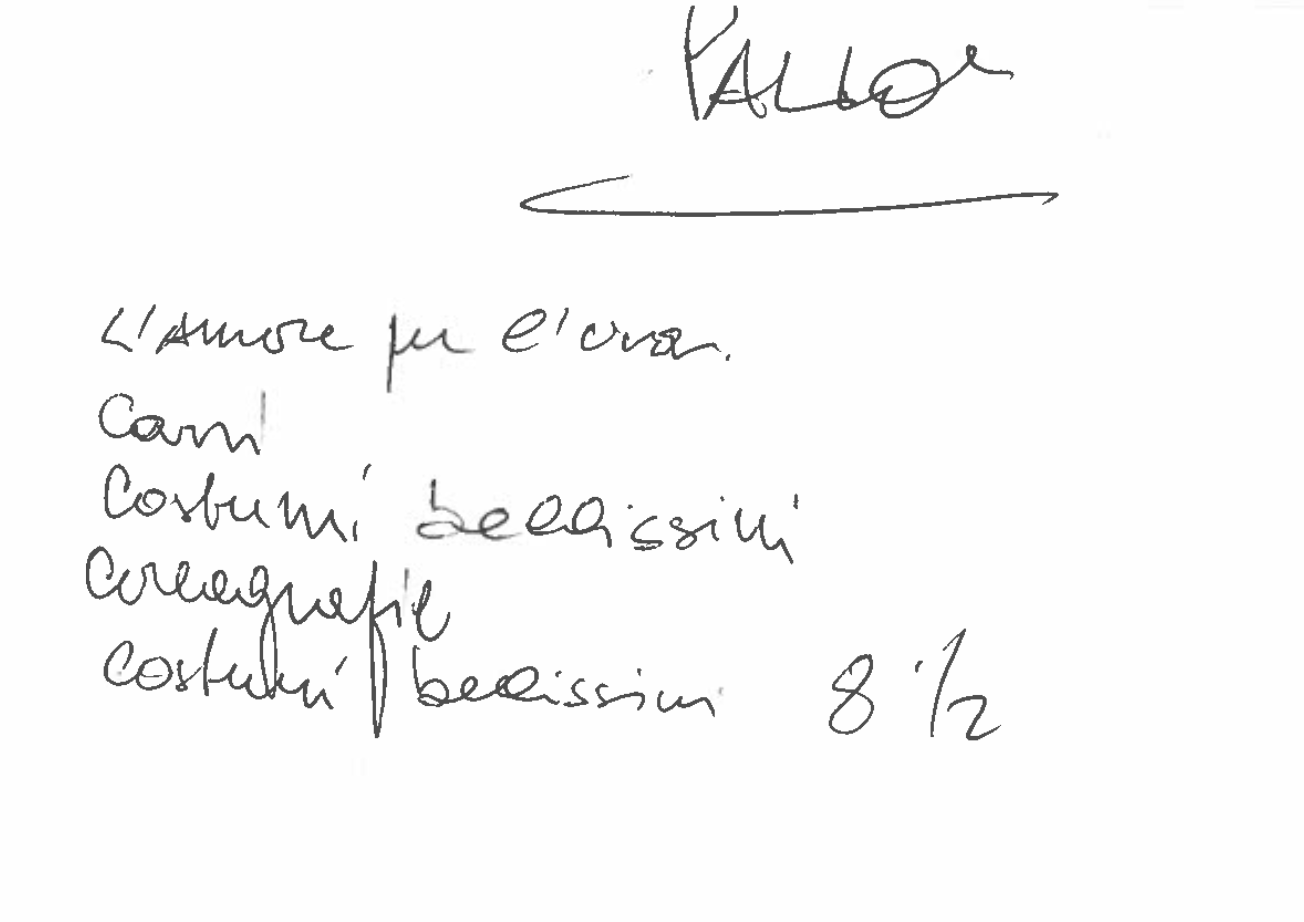 L'Amore per l'uva.
Carri
Costumi bellissimi
Coreografie
Costumi bellissimi 8 1/2